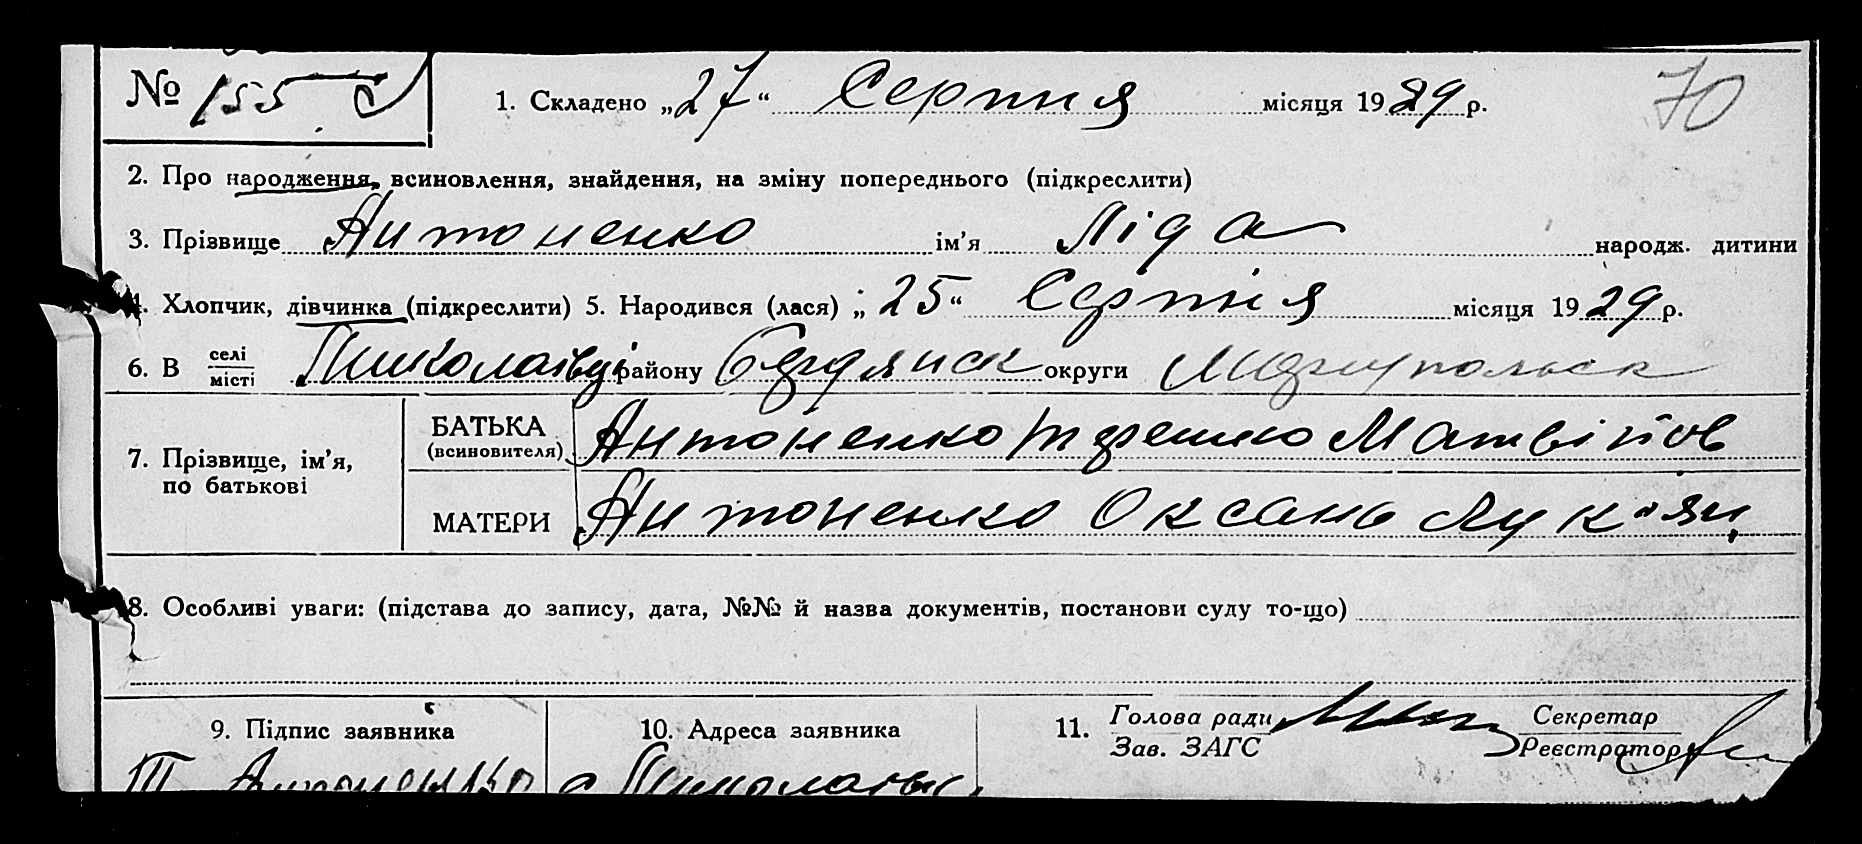 № 155 1. Складено „27“ Серпня місяця 1929 р. 70
2. Про народження, всиновлення, знайдення, на зміну попереднього (підкреслити)
3. Прізвище Антоненко ім’я Ліда народж. дитини
4. Хлопчик, дівчинка (підкреслити) 5. Народився (лася) „25“ Серпня місяця 1929 р.
6. В селі місті району Бердянск округи
7. Прізвище, ім’я, по батькові
БАТЬКА (всиновителя) Антоненко Матвійов
МАТЕРИ Антоненко Оксана
8. Особливі уваги: (підстава до запису, дата, №№ й назва документів, постанови суду то-що)
9. Підпис заявника 10. Адреса заявника 11. Голова ради Зав. ЗАГС Секретар Реєстратор
Т Антоненко с